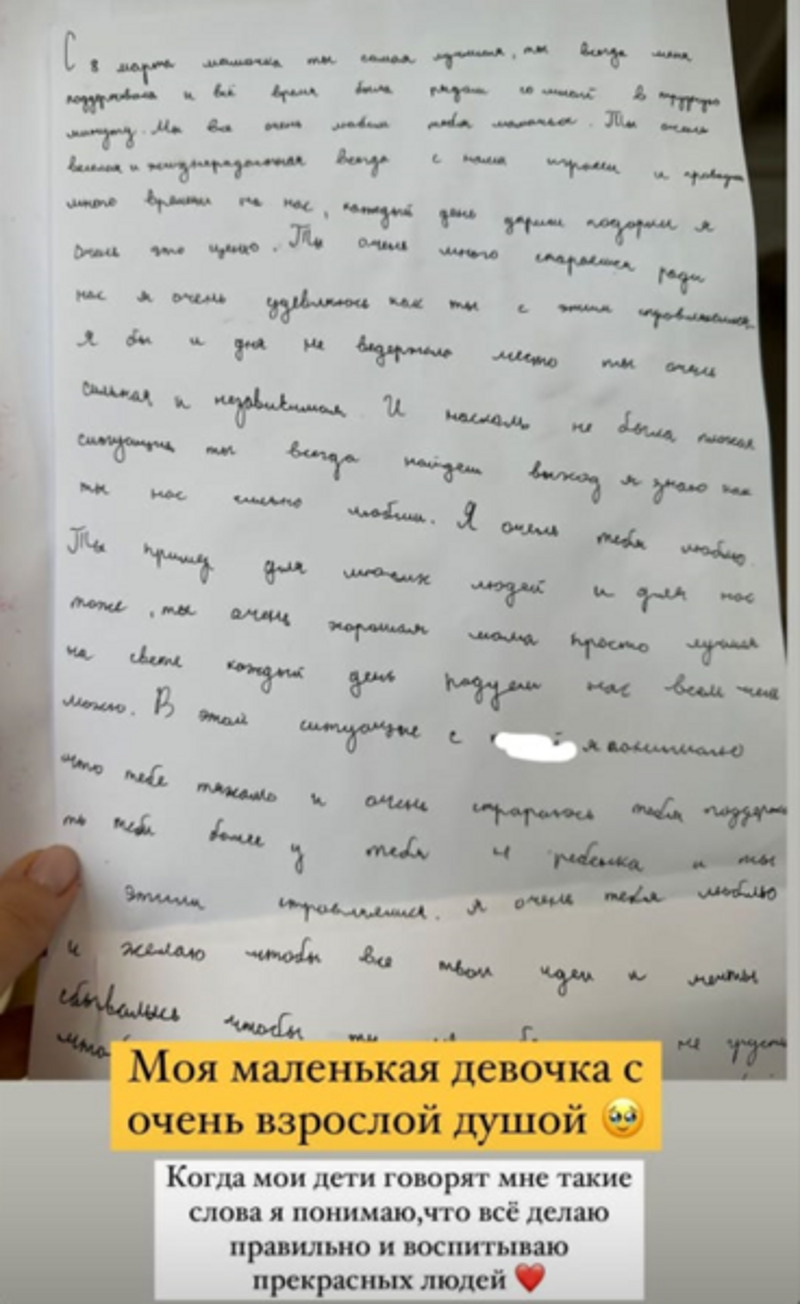 С 8 марта мамочка ты самая лучшая, ты всегда меня
поддерживала и всё время была рядом со мной в трудную
минуту. Мы все очень любим тебя мамочка. Ты очень
веселая и жизнерадостная всегда с нами играеш и проводиш
много времени на нас, каждый день дариш подарки я
очень это ценю. Ты очень много стараешся ради
нас я очень удевляюсь как ты с этим справляешся.
Я бы и дня не ведержала место ты очень
сильная и независимая. И наскаль не была плохая
ситуация ты всегда найдеш выход я знаю как
ты нас сильно любиш. Я очень тебя люблю.
Ты пример для многих людей и для нас
тоже, ты очень хорошая мама просто лучшая
на свете каждый день радуеш нас всем чем
можно. В этой ситуации с я понимаю
что тебе тяжело и очень страраюсь тебя
тем более у тебя 4 ребенка и ты
этим справляешся. я очень тебя люблю
и желаю чтобы все твои идеи и мечты
сбывались чтобы не
Моя маленькая девочка с
очень взрослой душой 🥹
Когда мои дети говорят мне такие
слова я понимаю,что всё делаю
правильно и воспитываю
прекрасных людей ❤️